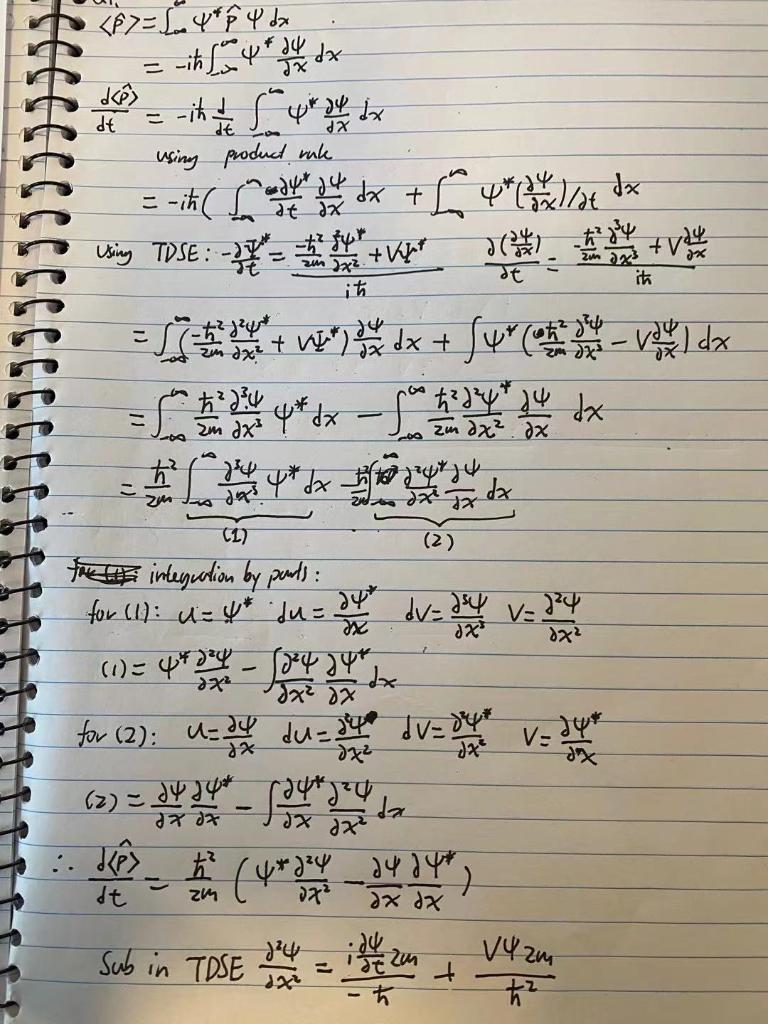 ⟨p̂⟩ = ∫_{-∞}^{∞} Ψ* p̂ Ψ dx
= -iħ ∫_{-∞}^{∞} Ψ* ∂Ψ/∂x dx
d⟨p̂⟩/dt = -iħ d/dt ∫_{-∞}^{∞} Ψ* ∂Ψ/∂x dx
using product rule
= -iħ ( ∫_{-∞}^{∞} ∂Ψ*/∂t ∂Ψ/∂x dx + ∫_{-∞}^{∞} Ψ* (∂Ψ/∂x)/∂t dx
using TDSE: -∂Ψ*/∂t = (-ħ²/2m ∂²Ψ*/∂x² + VΨ*)/iħ ∂(∂Ψ/∂x)/∂t = (-ħ²/2m ∂³Ψ/∂x³ + V ∂Ψ/∂x)/iħ
= ∫_{-∞}^{∞} (-ħ²/2m ∂²Ψ*/∂x² + VΨ*) ∂Ψ/∂x dx + ∫ Ψ* (ħ²/2m ∂³Ψ/∂x³ - V ∂Ψ/∂x) dx
= ∫_{-∞}^{∞} ħ²/2m ∂³Ψ/∂x³ Ψ* dx - ∫_{-∞}^{∞} ħ²/2m ∂²Ψ*/∂x² ∂Ψ/∂x dx
= ħ²/2m ∫_{-∞}^{∞} ∂³Ψ/∂x³ Ψ* dx - ħ²/2m ∫_{-∞}^{∞} ∂²Ψ*/∂x² ∂Ψ/∂x dx
(1) (2)
integration by parts:
for (1): u = Ψ* du = ∂Ψ*/∂x dV = ∂³Ψ/∂x³ V = ∂²Ψ/∂x²
(1) = Ψ* ∂²Ψ/∂x² - ∫ ∂²Ψ/∂x² ∂Ψ*/∂x dx
for (2): u = ∂Ψ/∂x du = ∂²Ψ/∂x² dV = ∂²Ψ*/∂x² V = ∂Ψ*/∂x
(2) = ∂Ψ/∂x ∂Ψ*/∂x - ∫ ∂Ψ*/∂x ∂²Ψ/∂x² dx
∴ d⟨p̂⟩/dt = ħ²/2m (Ψ* ∂²Ψ/∂x² - ∂Ψ/∂x ∂Ψ*/∂x)
Sub in TDSE ∂²Ψ/∂x² = (i ∂Ψ/∂t 2m)/-ħ + VΨ2m/ħ²